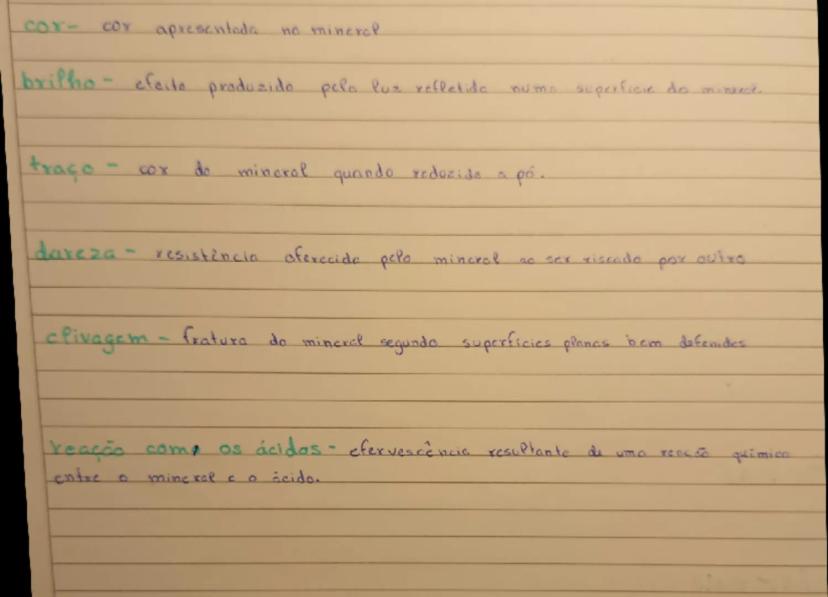 cor- cor apresentada no mineral
brilho - efeito produzido pela luz refletida numa superfície do mineral.
traço - cor do mineral quando reduzido a pó.
dureza - resistência oferecida pelo mineral ao ser riscado por outro
clivagem - fratura do mineral segundo superfícies planas bem defenidas
reação com os ácidos - efervescência resultante de uma reação química
entre o mineral e o ácido.